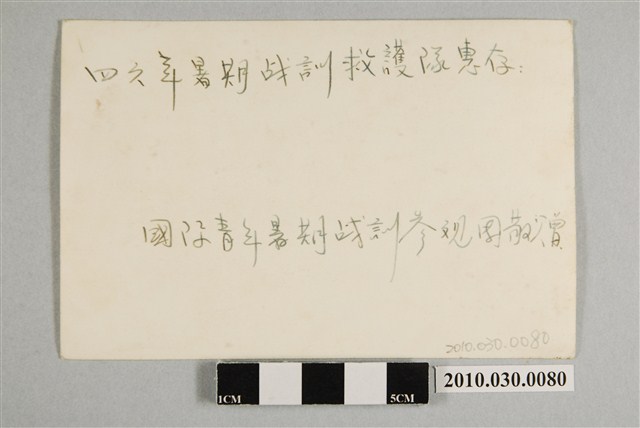 四六年暑期战訓救護隊惠存：
國际青年暑期战訓参观团敬贈
2010.030.0080
1CM
5CM
2010.030.0080